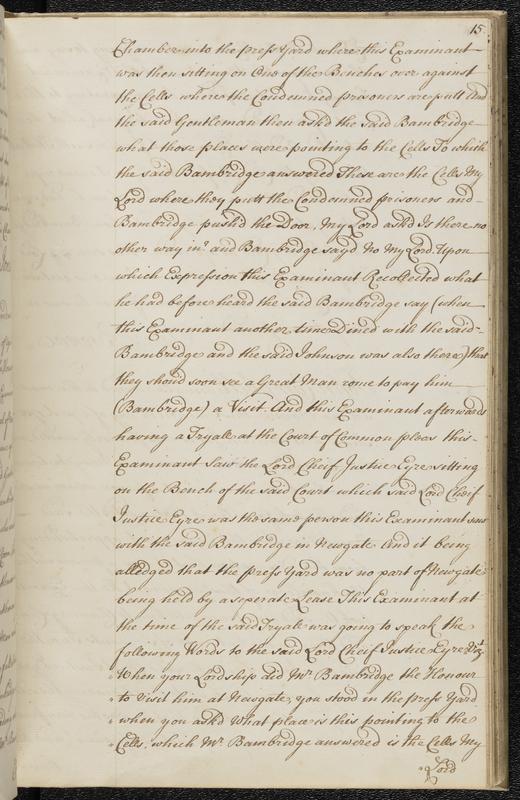 15
Chamber into the press Yard where this Examinant
was then sitting on One of the Benches over against
the Cells where the Condemned prisoners are putt And
the said Gentleman then ask'd the said Bambridge
what those places were pointing to the Cells To which
the said Bambridge answered These are the Cells My
Lord where they putt the Condemned prisoners and
Bambridge push'd the Door, My Lord ask'd Is there no
other way in? and Bambridge sayd No My Lord. Upon
which Expression this Examinant Recollected what
he had before heard the said Bambridge say (when
this Examinant another time Dined with the said
Bambridge and the said Johnson was also there) that
they shou'd soon see a Great Man come to pay him
(Bambridge) a Visit. And this Examinant afterwards
having a Tryall at the Court of Common pleas this
Examinant Saw the Lord Cheif Justice Eyre sitting
on the Bench of the said Court which said Lord Cheif
Justice Eyre was the same person this Examinant saw
with the said Bambridge in Newgate And it being
alledged that the press Yard was no part of Newgate
being held by a seperate Lease This Examinant at
the time of the said Tryall was going to speak the
following Words to the said Lord Cheif Justice Eyre Vizt
"When your Lordship did Mr. Bambridge the Honour
"to visit him at Newgate, you stood in the press Yard
"when you ask'd What place is this pointing to the
"Cells, which Mr. Bambridge answered is the Cells My
"Lord